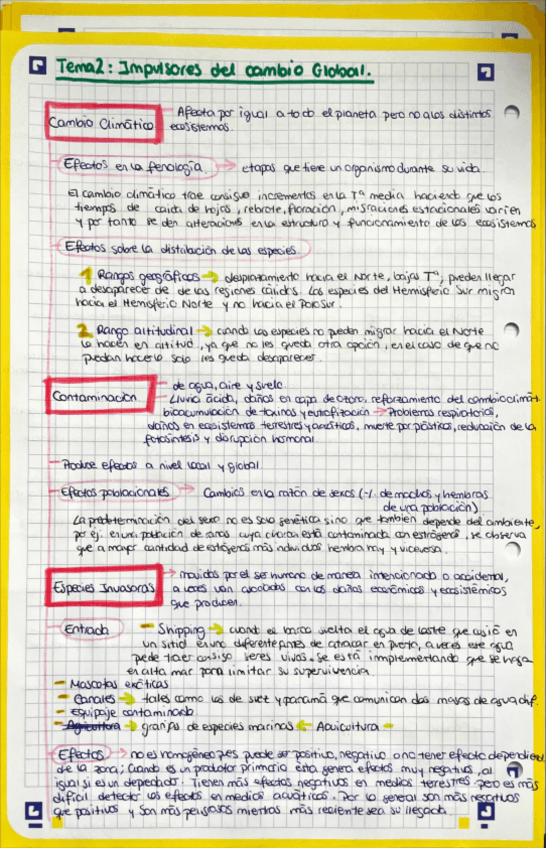 Tema 2: Impulsores del cambio Global.
Cambio Climático
Afecta por igual a todo el planeta pero no a los distintos
ecosistemas.
Efectos en la fenología → etapas que tiene un organismo durante su vida
El cambio climático trae consigo incrementos en la Tª media haciendo que los
tiempos de caida de hojas, rebrote, floración, migraciones estacionales varíen
y por tanto se den alteraciones en la estructura y funcionamiento de los ecosistemas
Efectos sobre la distribución de las especies
1 Rangos geográficos → desplazamiento hacia el Norte, bajas Tª, pueden llegar
a desaparecer de de las regiones cálidas. Las especies del Hemisferio Sur migran
hacia el Hemisferio Norte y no hacia el Polo Sur.
2 Rango altitudinal → cuando las especies no pueden migrar hacia el Norte
lo hacen en altitud, ya que no les queda otra opción, en el caso de que no
puedan hacerlo solo les queda desaparecer.
Contaminación
de agua, aire y suelo.
Lluvia ácida, daños en capa de ozono, reforzamiento del cambio climát.
bioacumulación de toxinas y eutrofización → Problemas respiratorios,
daños en ecosistemas terrestres y acuáticos, muerte por plásticos, reducción de la
fotosíntesis y disrupción hormonal
Produce efectos a nivel local y global.
Efectos poblacionales → Cambios en la razón de sexos (% de machos y hembras
de una población)
La predeterminación del sexo no es solo genética sino que también depende del ambiente,
por ej. en una población de ranas cuya charca está contaminada con estrógenos, se observa
que a mayor cantidad de estógenos más individuos hembra hay y viceversa.
Especies Invasoras
movidos por el ser humano de manera intencionada o accidental,
a veces van asociadas con los daños económicos y ecosistémicos
que producen.
Entrada
- Shipping → cuando el barco suelta el agua de lastre que cogió en
un sitio en uno diferente antes de atracar en puerto, a veces este agua
puede traer consigo seres vivos. Se está implementando que se haga
en alta mar para limitar su supervivencia.
- Mascotas exóticas
- Canales → tales como los de suez y panamá que comunican dos masas de agua dif.
- Equipaje contaminado
- Agricultura → granjas de especies marinas ← Acuicultura -
Efectos → no es homogéneo pues puede ser positivo, negativo o no tener efecto dependiendo
de la zona; Cuando es un productor primario esta genera efectos muy negativos, al
igual si es un depredador. Tienen más efectos negativos en medios terrestres pero es más
difícil detectar los efectos en medios acuáticos. Por lo general son más negativos
que positivos y son más peligrosos mientras más reciente sea su llegada.